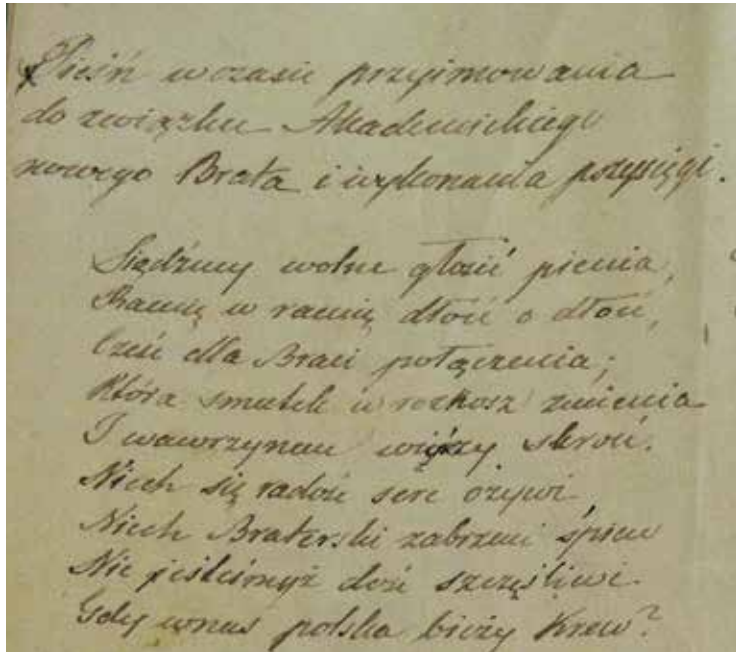 Pieśń w czasie przyimowania
do związku Akademickiego
nowego Brata i wykonania przysięgi.
Siądźmy wolne głosić pienia,
Ramię w ramię, dłoń o dłoń,
Cześć dla Braci połączenia;
Która smutek w rozkosz zmienia
I wawrzynem więzy skroń.
Niech się radość serc ożywi
Niech Braterski zabrzmi śpiew
Nie jesteśmyż dość szczęśliwi
Gdy w nas polska bieży Krew?